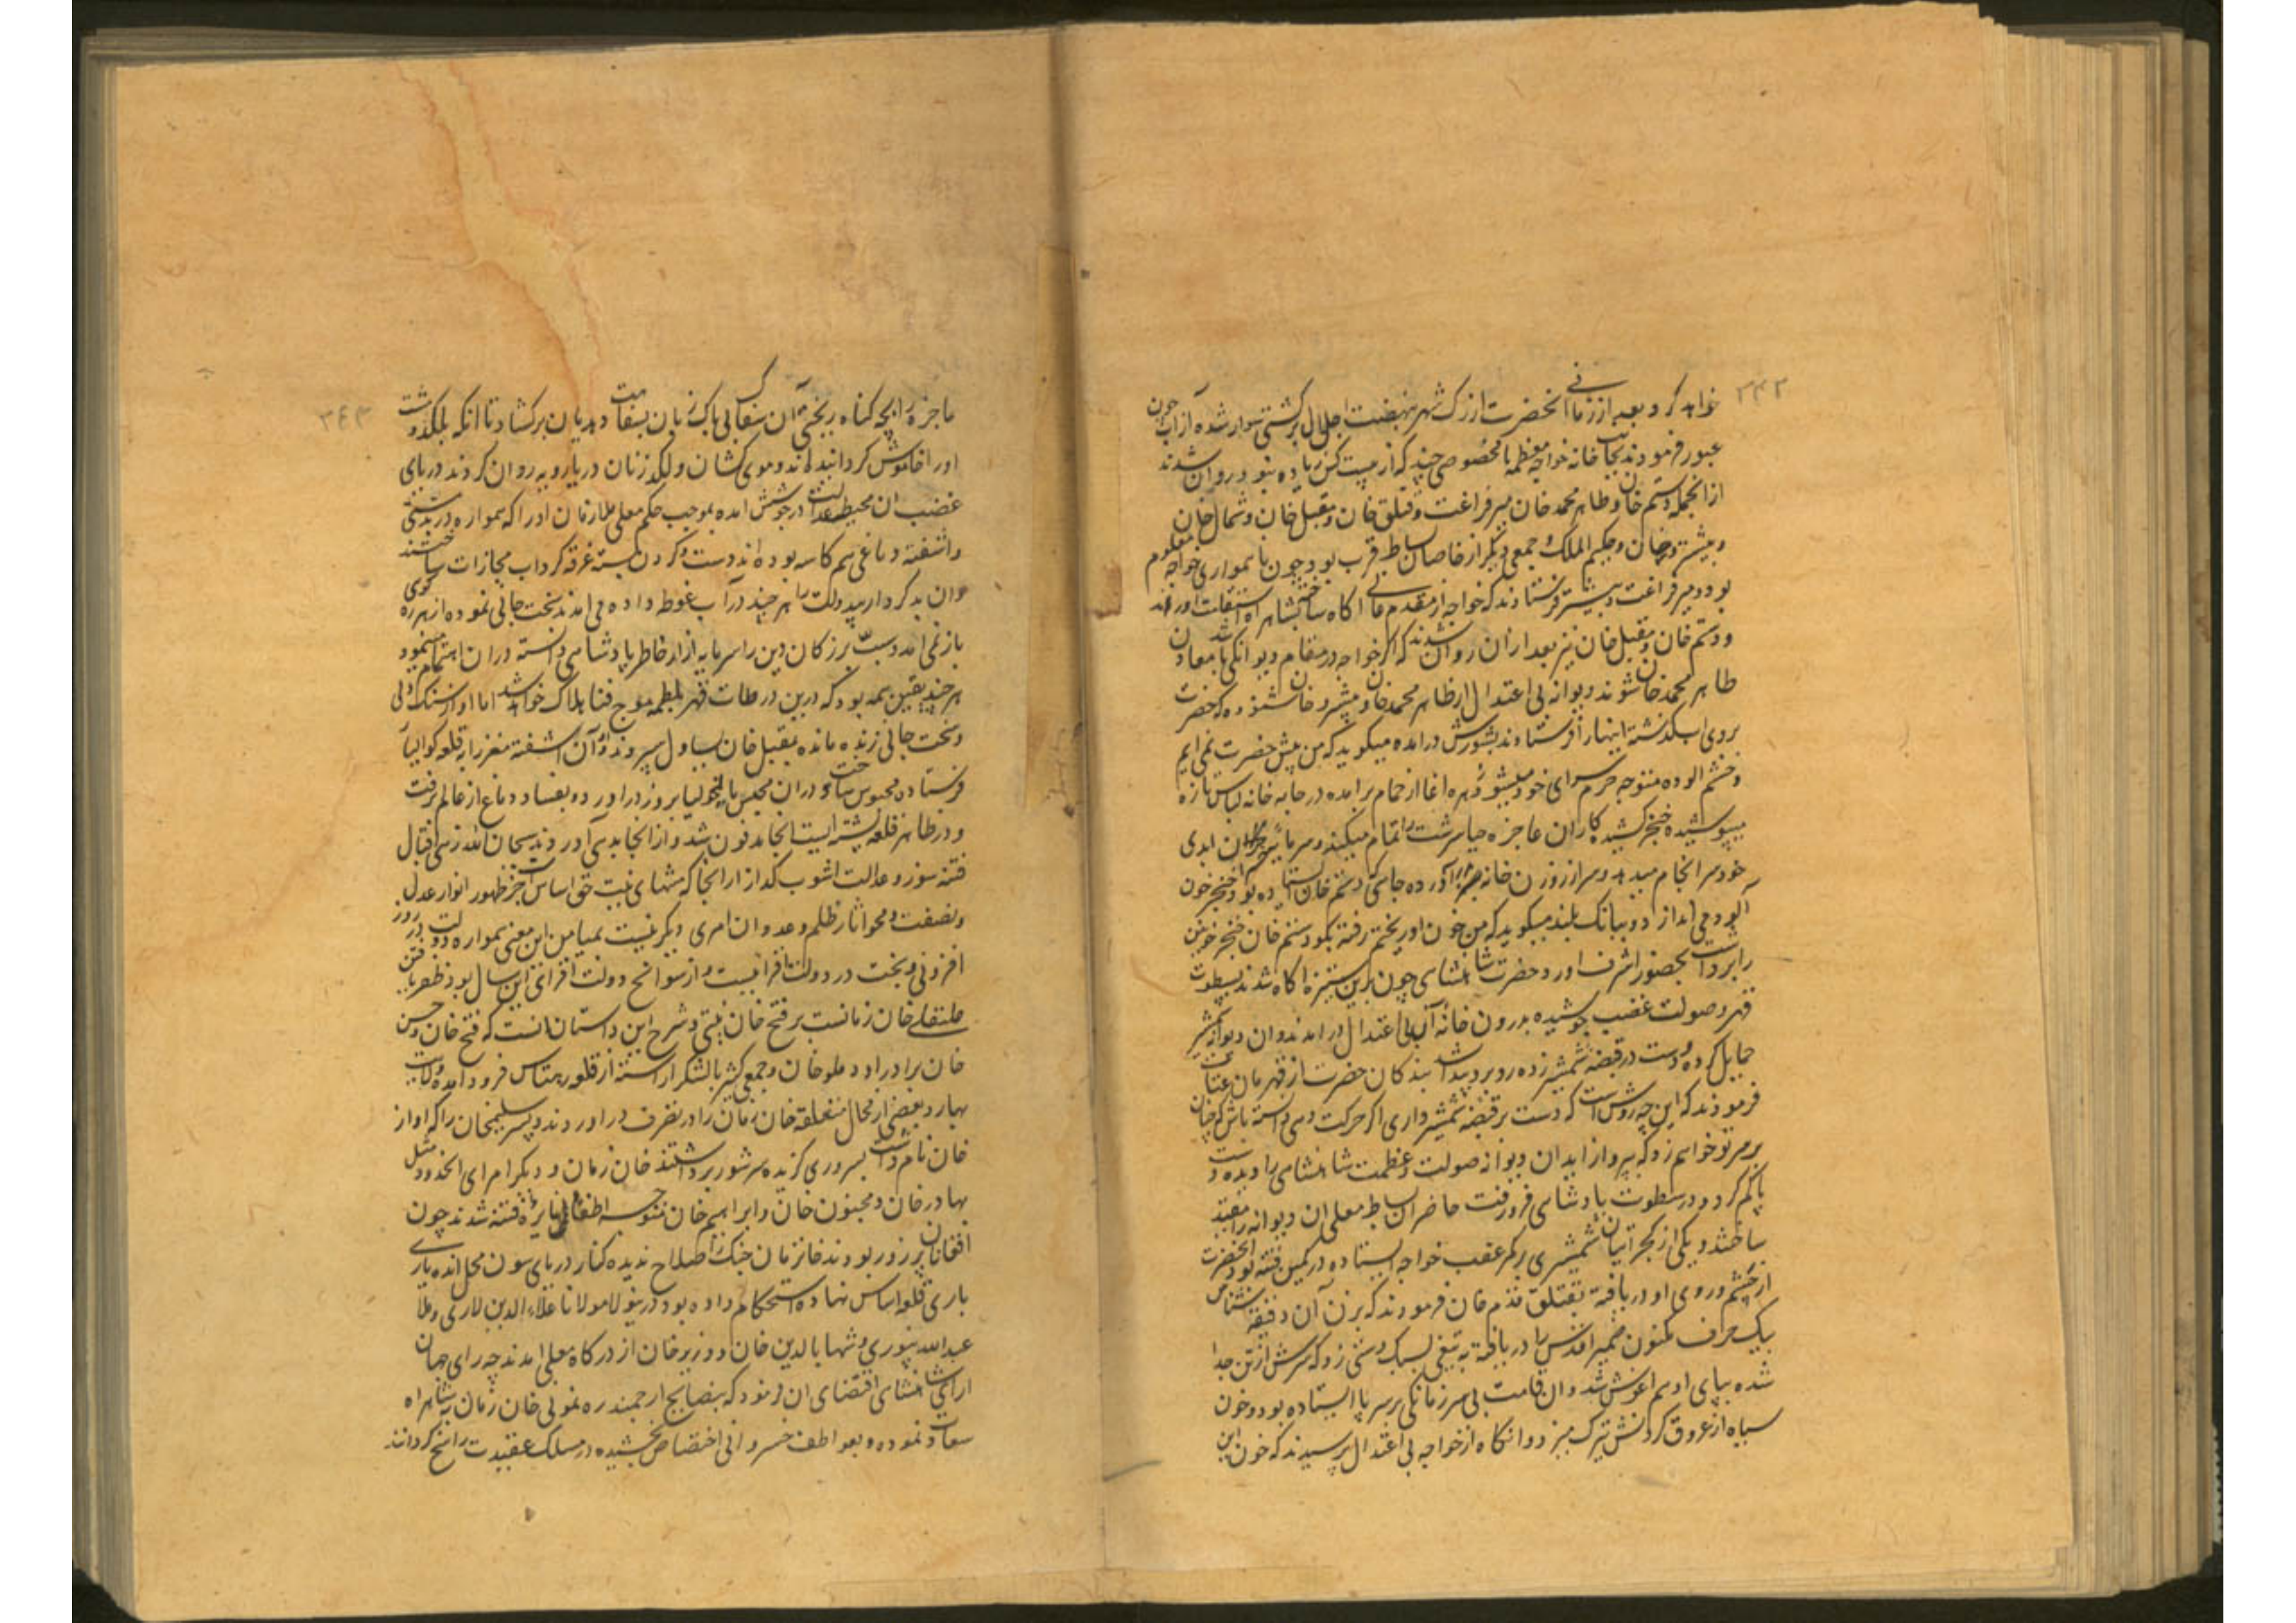 ۳۴۲
خواهد کرد و بعد از زمانی آنحضرت از ارک شهر بنهضت اجلال بر کشتی سوار شده از آب جون
عبور فرمودند بجانب خانه خواجه معظم با مخصوصی چند که از بیست کس زیاده نبود روان شدند
ازانجمله دستم خان و طاهر محمد خان میر فراغت و قتلق خان و مقبل خان و شمال خان
و پیشرو خان و حکیم الملک و جمعی دیگر از خاصان بساط قرب بود چون ناهمواری خواجه معلوم
بود میر فراغت و پیشتر فرستادند که خواجه از مقدم عالی آگاه ساخته بشاهراه استقامت آورند
و دستم خان و مقبل خان نیز بعد ازان روان شدند که اگر خواجه در مقام دیوانگی باشد معاون
طاهر محمد خان شوند دیوانه بی اعتدال از طاهر محمد خان و پیشرو خان شنوده که حضرت
بروی آب گذشته اینها را فرستادند بشورش درآمده میگوید که من پیش حضرت نمی ایم
و خشم الوده متوجه حرم سرای خود میشود زهره اغا از حمام برامده در جابه خانه لباس تازه
میپوشیده خنجر کشیده کار ان عاجزه حیا سرشت را تمام میکند و سرمایه خسران ابدی
خود سرانجام میدهد و سر از روزن خانه برآورده جائیکه دستم خان ایستاده بود خنجر خون
آلود می اندازد و ببانک بلند میگوید که من خون او ریختم رفته بگو دستم خان خنجر خونین
را برداشته بحضور اشرف اورد حضرت شاهنشاهی چون برین ستیزه اگاه شدند بسطوت
قهر و صولت غضب جوشیده بدرون خانه آن بی اعتدال درامدند و ان دیوانه شمشیر
حمایل کرده و دست در قبضه شمشیر زده روبرو پیدا شد بندگان حضرت از قهرمان عتاب
فرمودند که این چه روش است که دست بر قبضه شمشیر داری اگر حرکت دهی دانسته باش که چنان
بر سر تو خواهم زد که پرواز ایدان دیوانه صولت و عظمت شاهنشاهی را دیده دست
پا گم کرد و در سطوت پادشاهی فرو رفت حاضران بساط معلی ان دیوانه را مقید
ساختند و یکی از گجراتیان شمشیری در کمر عقب خواجه ایستاده در کمین فتنه بود آنحضرت
از چشم و روی او دریافته بقتلق قدم خان فرمودند که بزن آن دقیقه شناس
بیک حرف مکنون ضمیر اقدس را دریافته به تیغی سبک دستی زد که سرش از تن جدا
شده بپای او هم اغوش شد و ان قامت بی سر زمانکی بر سر پا ایستاده بود و خون
سیاه از عروق گردنش تیرک میزد و انگاه از خواجه بی اعتدال پرسیدند که خون این
۳۴۳
ماجزه را بچه گناه ریختی آن سفاک بی باک زبان بسفاهت و هذیان برکشاد تا انکه بلکد و مشت
او را خاموش گردانیدند و موی کشان و لکد زنان دریا رویه روان کردند دریای
غضب ان محیط عدالت در جوشش امده بموجب حکم معلی ملازمان او را که همواره در بدمستی
و اشفته دماغی هم کاسه بوده اند دست و گردن بسته غرقه گرداب مجازات ساختند
و ان بدکردار بیدولت را هر چند در آب غوطه داده می امدند سخت جانی نموده از هرزه گوی
باز نمی امد و سبّ بزرگان دین را سرمایه ازار خاطر پادشاهی دانسته دران اهتمام مینمود
هر چند یقین همه بود که درین ورطات قهر بلطمه موج فنا هلاک خواهد شد اما او از سنگ دلی
و سخت جانی زنده مانده بمقبل خان یساول سپردند و آن اشفته مغز را بقلعه گوالیار
فرستاده محبوس ساخت و دران محبس مالیخولیا بروز دراورده بفساد دماغ از عالم برفت
و در ظاهر قلعه پشته ایست انجا مدفون شد و از انجا بدهلی آوردند سبحان الله زهی اقبال
فتنه سوز و عدالت اشوب گداز ازانجا که منتهای نیت حق اساس جز ظهور انوار عدل
و نصفت و محو اثار ظلم و عدوان امری دیگر نیست بمیامن این معنی همواره دولت روز
افزونی و بخت در دولت افزائیست و از سوانح دولت افزای این سال بود ظفر یافتن
علیقلی خان زمانست بر فتح خان پتنی و شرح این داستان انست که فتح خان و حسن
خان برادر او و ملو خان و جمعی کثیر بالشکر اراسته از قلعه رهتاس فرود امده ولایت
بهار و بعضی از محال متعلقه خان زمان را در تصرف دراوردند و پسر سلیمخان را که اواز
خان نام داشت بسروری گزیده سر شور برداشتند خان زمان و دیگر امرای انحدود مثل
بهادر خان و مجنون خان و ابراهیم خان متوجه اطفای نایره فتنه شدند چون
افغانان پر زور بودند خانزمان جنگ را صلاح ندیده کنار دریای سون محل اندیاری
باری قلعه اساس نهاده استحکام داده بود درینولا مولانا علاء الدین لاری و ملا
عبدالله نپوری و شهاب الدین خان و وزیر خان از درگاه معلی امدند چه رای جهان
ارای شاهنشاهی اقتضای ان فرمود که بنصایح ارجمند رهنمونی خان زمان بشاهراه
سعادت نموده و بعواطف خسروانی اختصاص بخشیده در مسلک عقیدت راسخ گردانند